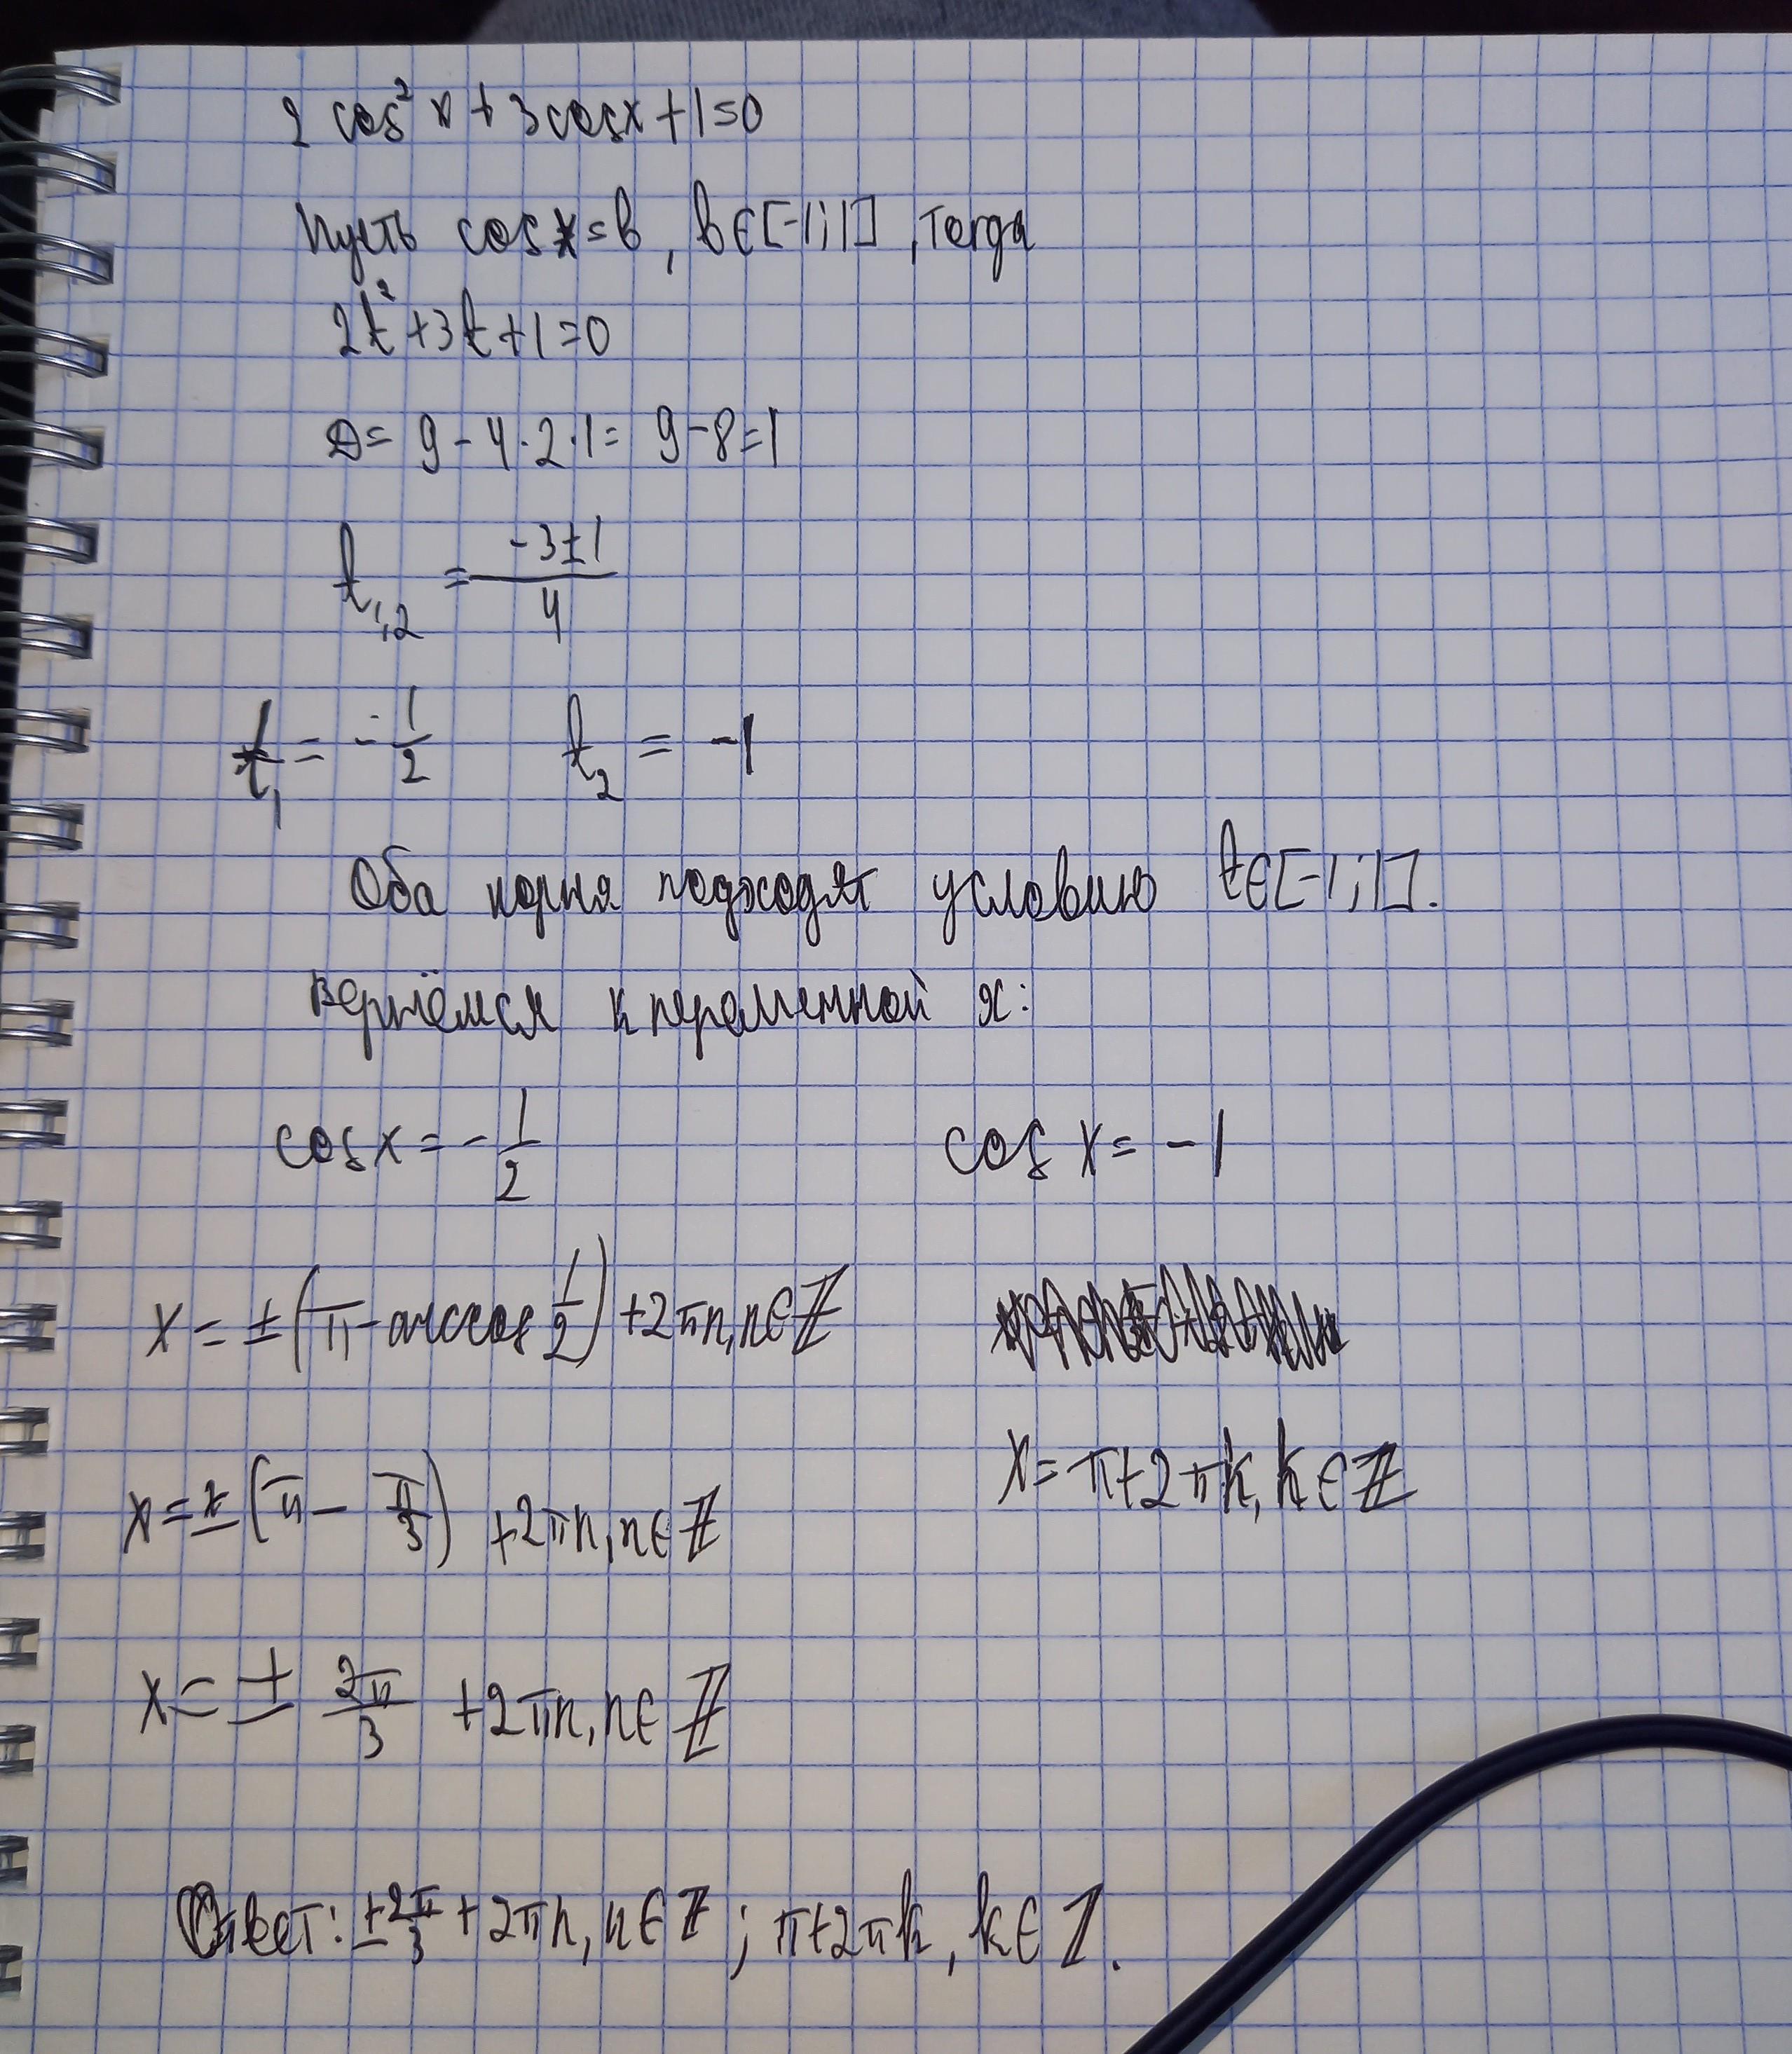 2 cos² x + 3 cos x + 1 = 0
Пусть cos x = b, b ∈ [-1; 1], тогда
2t² + 3t + 1 = 0
D = 9 - 4 · 2 · 1 = 9 - 8 = 1
t₁,₂ = (-3 ± 1)/4
t₁ = -1/2 t₂ = -1
Оба корня подходят условию t ∈ [-1; 1].
Вернёмся к переменной x:
cos x = -1/2 cos x = -1
x = ±(π - arccos 1/2) + 2πn, n ∈ ℤ
x = ±(π - π/3) + 2πn, n ∈ ℤ x = π + 2πk, k ∈ ℤ
x = ± 2π/3 + 2πn, n ∈ ℤ
Ответ: ± 2π/3 + 2πn, n ∈ ℤ; π + 2πk, k ∈ ℤ.